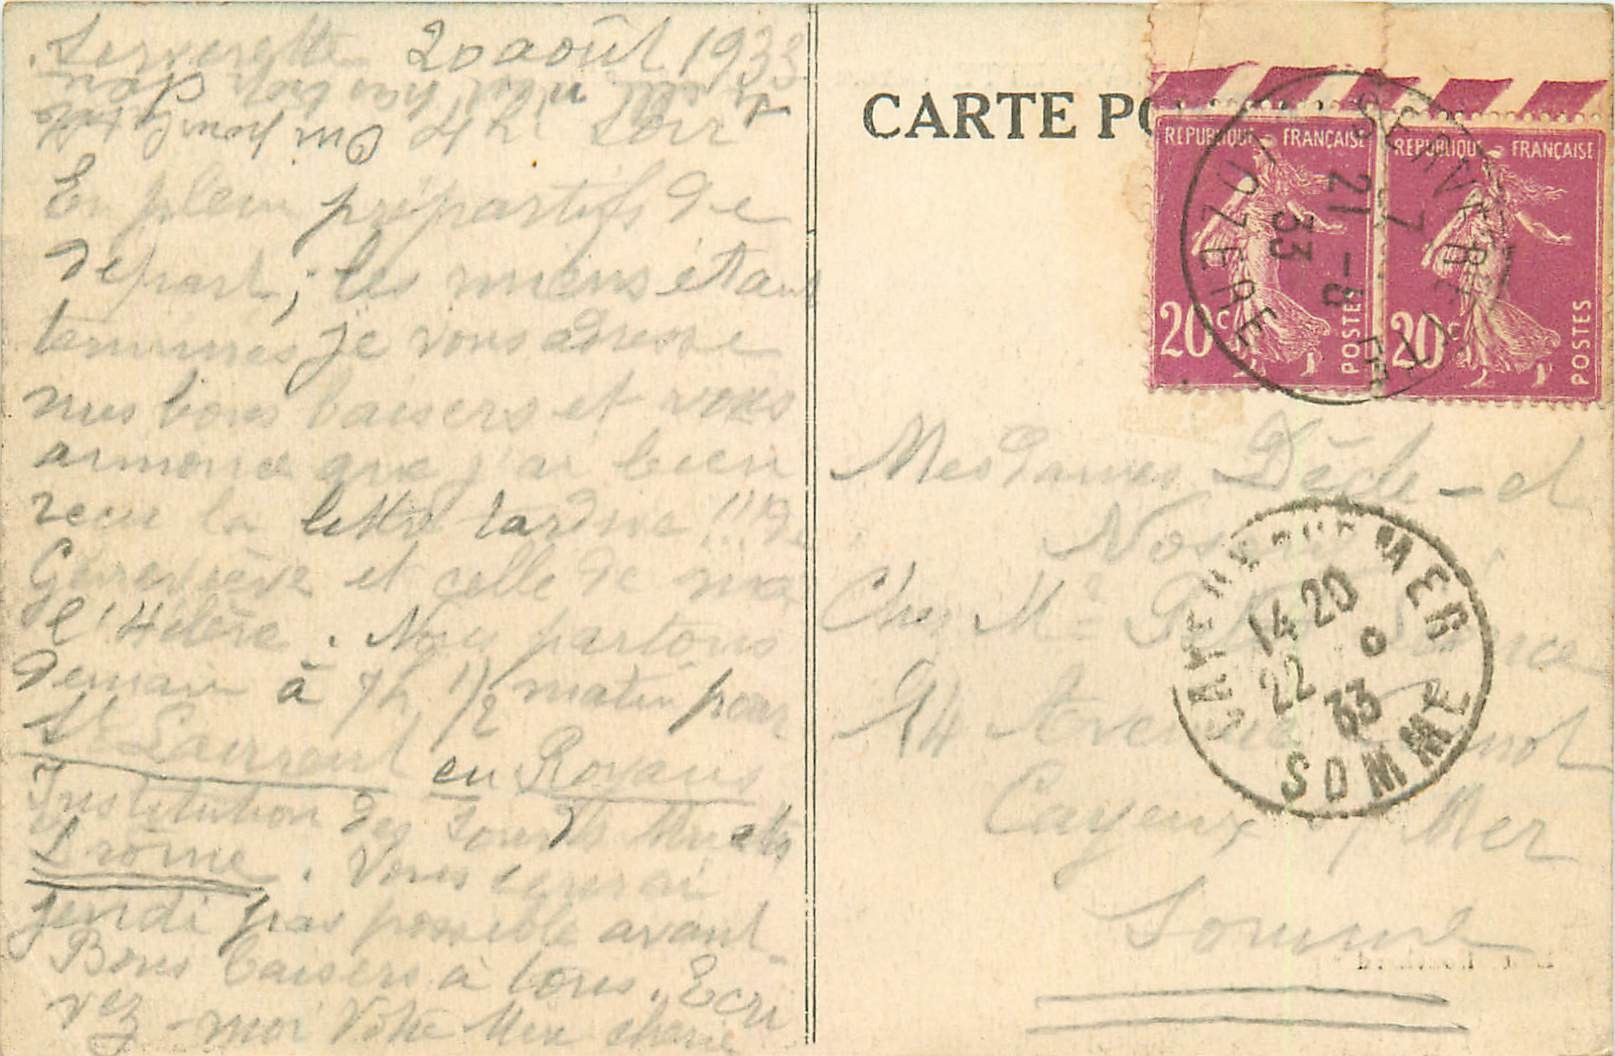 Serverette 20 août 1933
4 h. soir
En plein préparatifs de
départ, les miens étant
terminés je vous adresse
mes bons baisers et vous
annonce que j'ai bien
recu la lettre tardive !!! de
Geneviève et celle de ma
d' Hélène. Nous partons
demain à 7h 1/2 matin pour
St Laurent en Royans
Institution des Sourds Muets
Drôme. Vous écrirai
jeudi pas possible avant
Bons baisers à tous. Ecri
vez-moi Votre Mère chérie
CARTE PO
REPUBLIQUE FRANÇAISE
20c POSTES
REPUBLIQUE FRANÇAISE
20c POSTES
SERVERETTE
7
21-8
33
LOZERE
Mesdames Dède et
Chez Mr
94 Avenue
Cayeux s/ Mer
Somme
CAYEUX-SUR-MER
14 20
22 8
33
SOMME